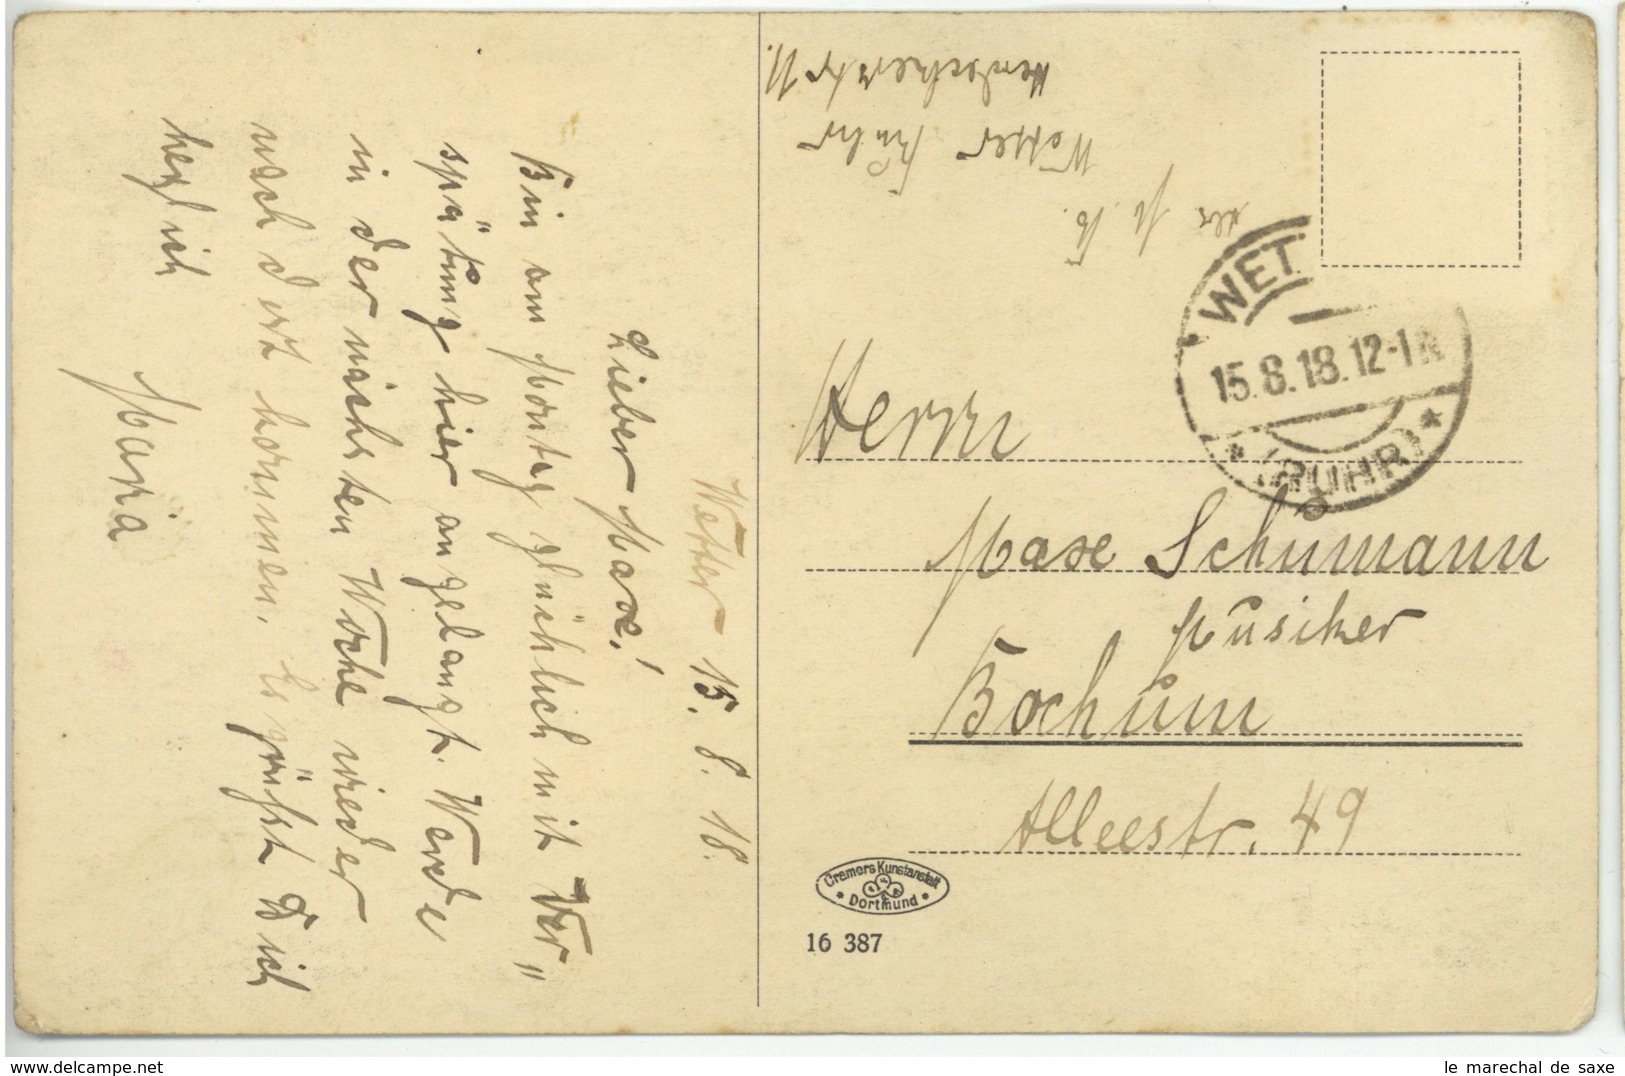 Wetter 15. 8. 18.
Lieber Maxe!
Bin am Montag glücklich mit Ver„
spätung hier angelangt. Werde
in der nächsten Woche wieder
nach dort kommen. Es grüßt Dich
herzlich
Maria
M. B.
Wetter Ruhr
11.
WET
15.8.18.12-1N
(RUHR)
Herrn
Maxe Schumann
Musiker
Bochum
Alleestr. 49
Cramers Kunstanstalt
Dortmund
16 387
www.delcampe.net
le marechal de saxe